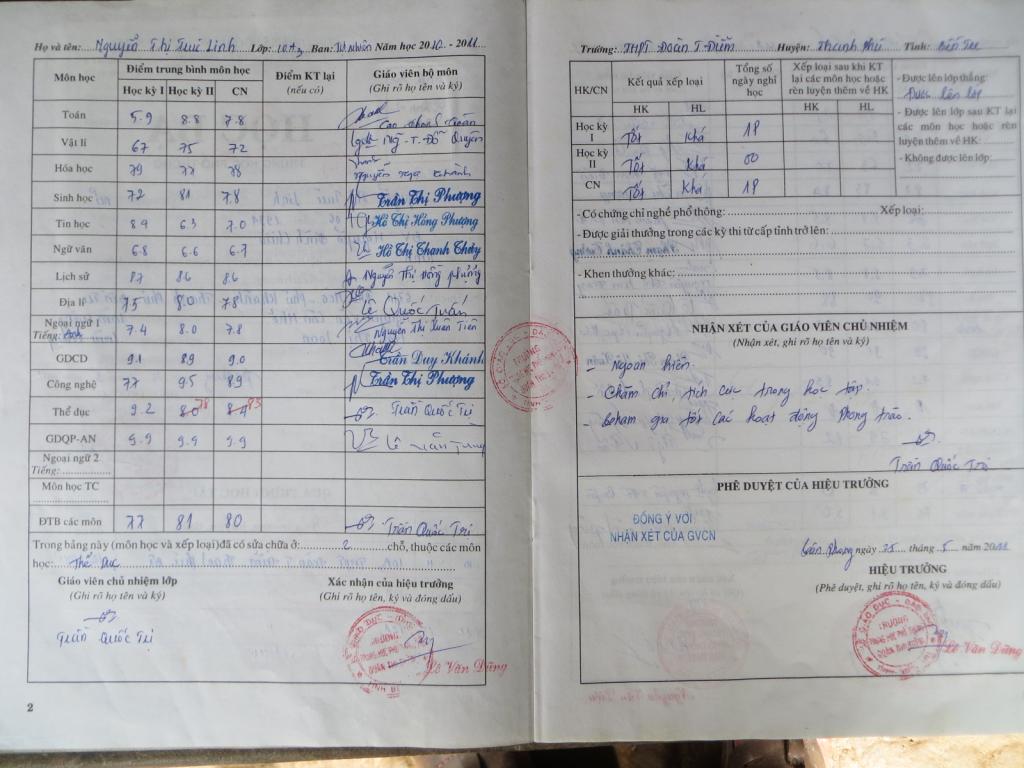 Họ và tên: Nguyễn Thị Trúc Linh Lớp: 10A3 Ban: Tự nhiên Năm học 2010 - 2011
Môn học Điểm trung bình môn học Điểm KT lại (nếu có) Giáo viên bộ môn (Ghi rõ họ tên và ký)
Học kỳ I Học kỳ II CN
Toán 5.9 8.8 7.8
Vật lí 67 75 72
Hóa học 79 77 78
Sinh học 72 81 7.8 Trần Thị Phượng
Tin học 8.9 6.3 7.0 Hồ Thị Hồng Phượng
Ngữ văn 6.8 6.6 6.7 Hồ Thị Thanh Thủy
Lịch sử 87 86 86 Nguyễn Thị Hồng Phượng
Địa lí 75 8.0 78 Lê Quốc Tuấn
Ngoại ngữ 1 Tiếng: Anh 7.4 8.0 7.8 Nguyễn Thị Xuân Tiên
GDCD 9.1 8.9 9.0 Trần Duy Khánh
Công nghệ 77 95 89 Trần Thị Phượng
Thể dục 9.2 80 78 84 83 Trần Quốc Trị
GDQP-AN 9.9 9.9 9.9
Ngoại ngữ 2 Tiếng:
Môn học TC
ĐTB các môn 77 81 80 Trần Quốc Trị
Trong bảng này (môn học và xếp loại) đã có sửa chữa ở: 2 chỗ, thuộc các môn
học: Thể Dục
Giáo viên chủ nhiệm lớp Xác nhận của hiệu trưởng
(Ghi rõ họ tên và ký) (Ghi rõ họ tên, ký và đóng dấu)
Trần Quốc Trị
Lê Văn Dũng
2
Trường: THPT Đoàn T-Điểm Huyện: Thạnh Phú Tỉnh: Bến Tre
HK/CN Kết quả xếp loại Tổng số ngày nghỉ học Xếp loại sau khi KT lại các môn học hoặc rèn luyện thêm về HK
HK HL HK HL
Học kỳ I Tốt Khá 1P
Học kỳ II Tốt Khá 00
CN Tốt Khá 1P
- Được lên lớp thẳng:
Được lên lớp
- Được lên lớp sau KT lại các môn học hoặc rèn luyện thêm về HK:
- Không được lên lớp:
- Có chứng chỉ nghề phổ thông: Xếp loại:
- Được giải thưởng trong các kỳ thi từ cấp tỉnh trở lên:
- Khen thưởng khác:
NHẬN XÉT CỦA GIÁO VIÊN CHỦ NHIỆM
(Nhận xét, ghi rõ họ tên và ký)
- Ngoan hiền.
- Chăm chỉ, tích cực trong học tập.
- Tham gia tốt các hoạt động phong trào.
Trần Quốc Trị
PHÊ DUYỆT CỦA HIỆU TRƯỞNG
ĐỒNG Ý VỚI
NHẬN XÉT CỦA GVCN
ngày 25 tháng 5 năm 2011
HIỆU TRƯỞNG
(Phê duyệt, ghi rõ họ tên, ký và đóng dấu)
Lê Văn Dũng